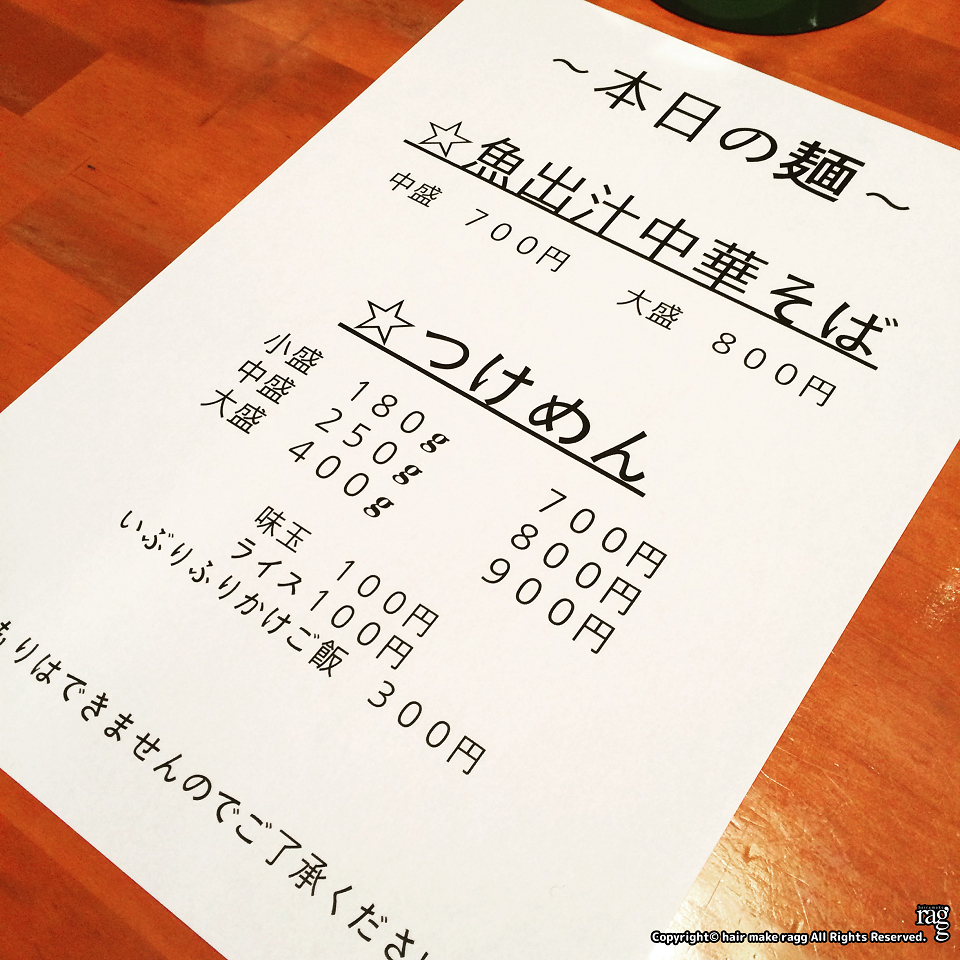 ～本日の麺～
☆魚出汁中華そば
中盛　７００円　大盛　８００円
☆つけめん
小盛　１８０g　７００円
中盛　２５０g　８００円
大盛　４００g　９００円
味玉　１００円
ライス１００円
いぶりふりかけご飯　３００円
もりはできませんのでご了承ください
ragg
Copyright© hair make ragg All Rights Reserved.